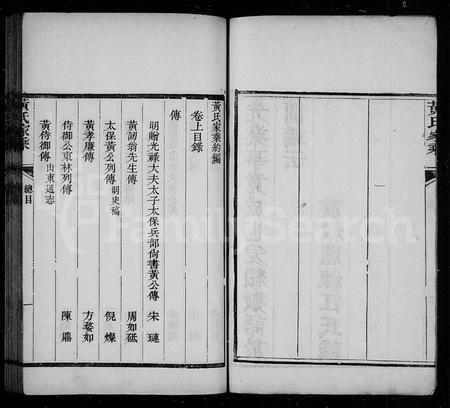 黃氏家乘
黃氏家乘約編
卷上目錄
傳
明贈光祿大夫太子太保兵部尚書黃公傳 宋璉
黃韌翁先生傳 周如砥
太保黃公列傳 明史稿 倪燦
黃孝廉傳 方婺如
侍御公東林列傳 陳鼎
黃侍御傳 山東通志
黃氏家乘 總目
FamilySearch